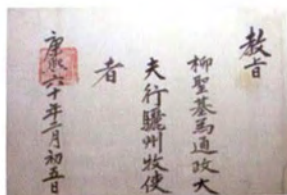 教旨
柳聖基爲通政大
夫行驪州牧使
者
康熙六十年二月初五日